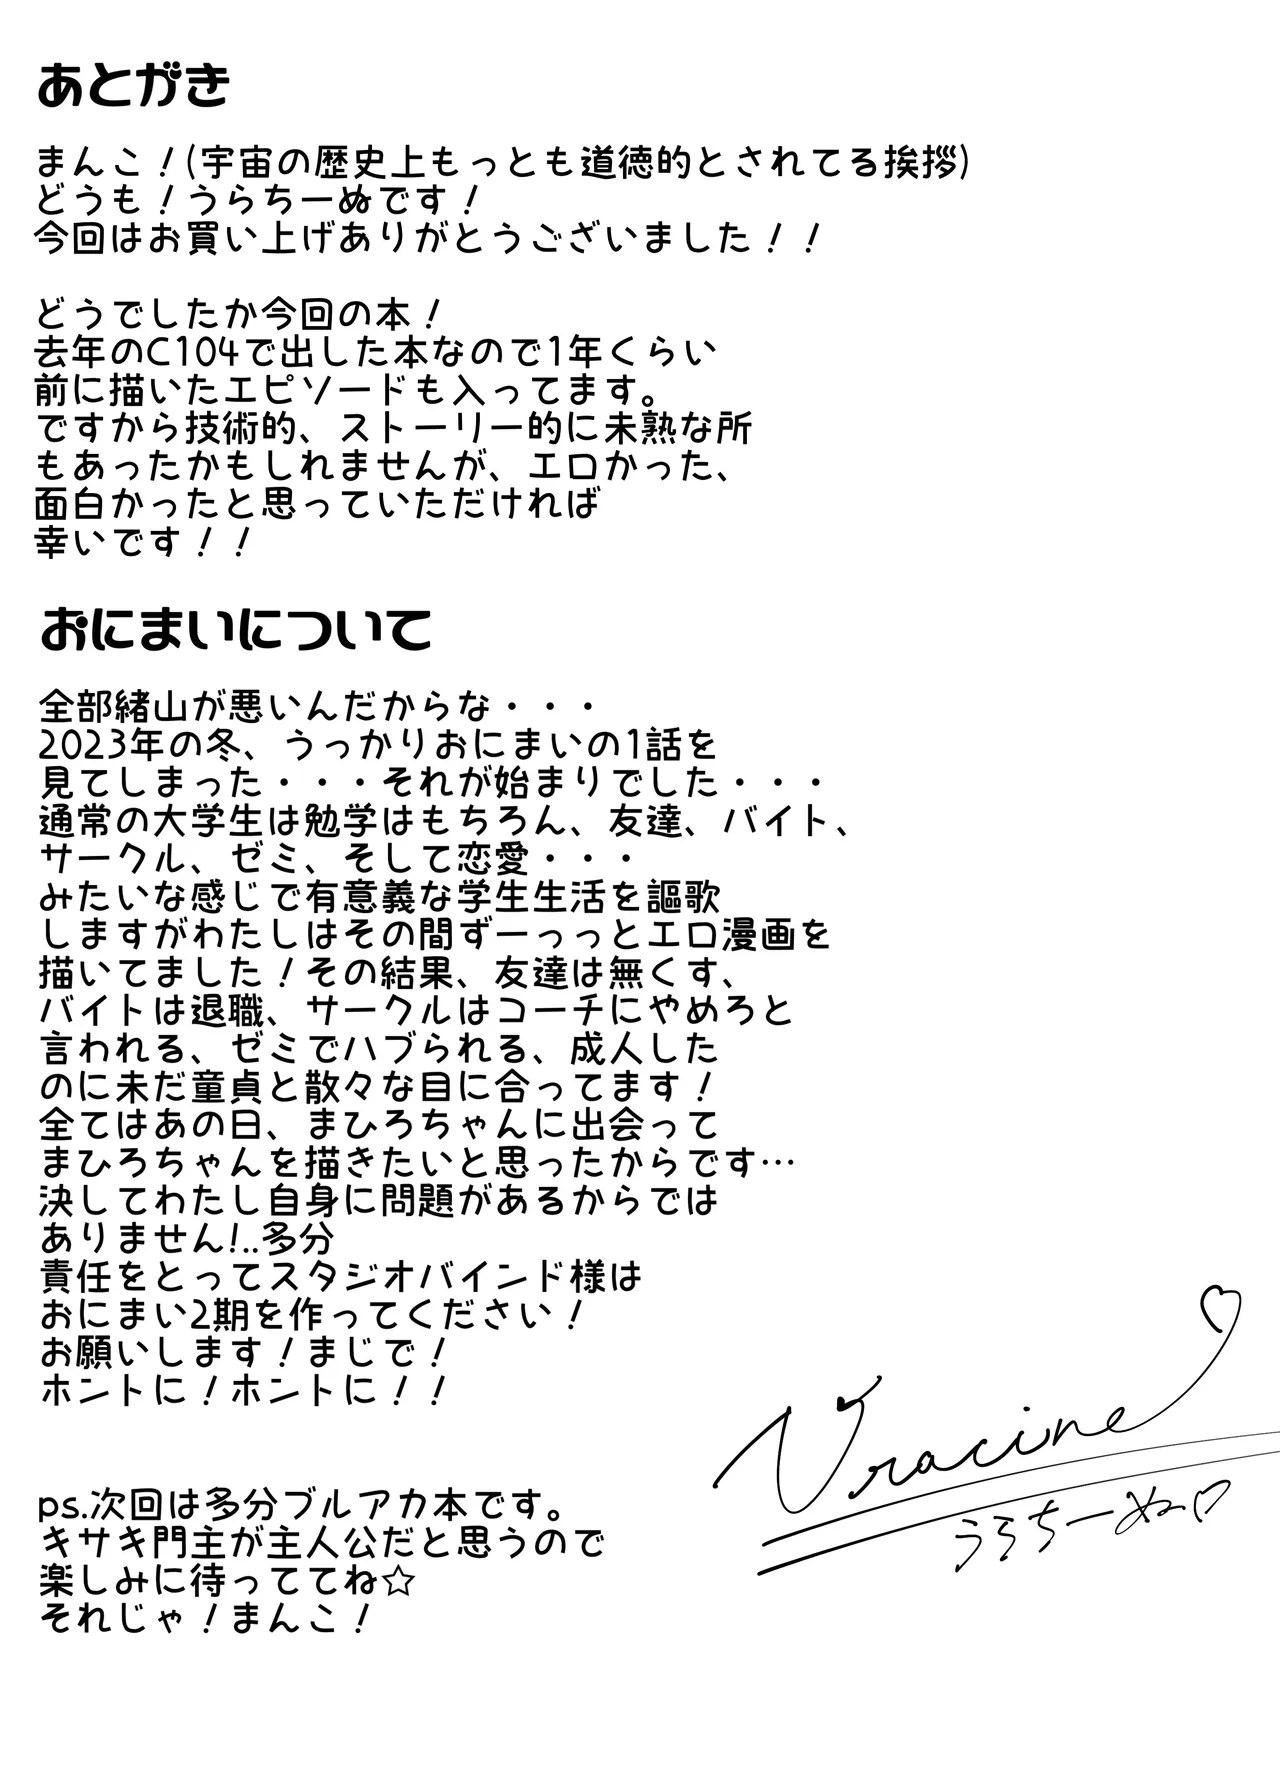 あとがき
まんこ！(宇宙の歴史上もっとも道徳的とされてる挨拶)
どうも！うらちーぬです！
今回はお買い上げありがとうございました！！
どうでしたか今回の本！
去年のC104で出した本なので1年くらい
前に描いたエピソードも入ってます。
ですから技術的、ストーリー的に未熟な所
もあったかもしれませんが、エロかった、
面白かったと思っていただければ
幸いです！！
おにまいについて
全部緒山が悪いんだからな・・・
2023年の冬、うっかりおにまいの1話を
見てしまった・・・それが始まりでした・・・
通常の大学生は勉学はもちろん、友達、バイト、
サークル、ゼミ、そして恋愛・・・
みたいな感じで有意義な学生生活を謳歌
しますがわたしはその間ずーっっとエロ漫画を
描いてました！その結果、友達は無くす、
バイトは退職、サークルはコーチにやめろと
言われる、ゼミでハブられる、成人した
のに未だ童貞と散々な目に合ってます！
全てはあの日、まひろちゃんに出会って
まひろちゃんを描きたいと思ったからです…
決してわたし自身に問題があるからでは
ありません!..多分
責任をとってスタジオバインド様は
おにまい2期を作ってください！
お願いします！まじで！
ホントに！ホントに！！
Vracine♡
うらちーぬ♡
ps.次回は多分ブルアカ本です。
キサキ門主が主人公だと思うので
楽しみに待っててね☆
それじゃ！まんこ！